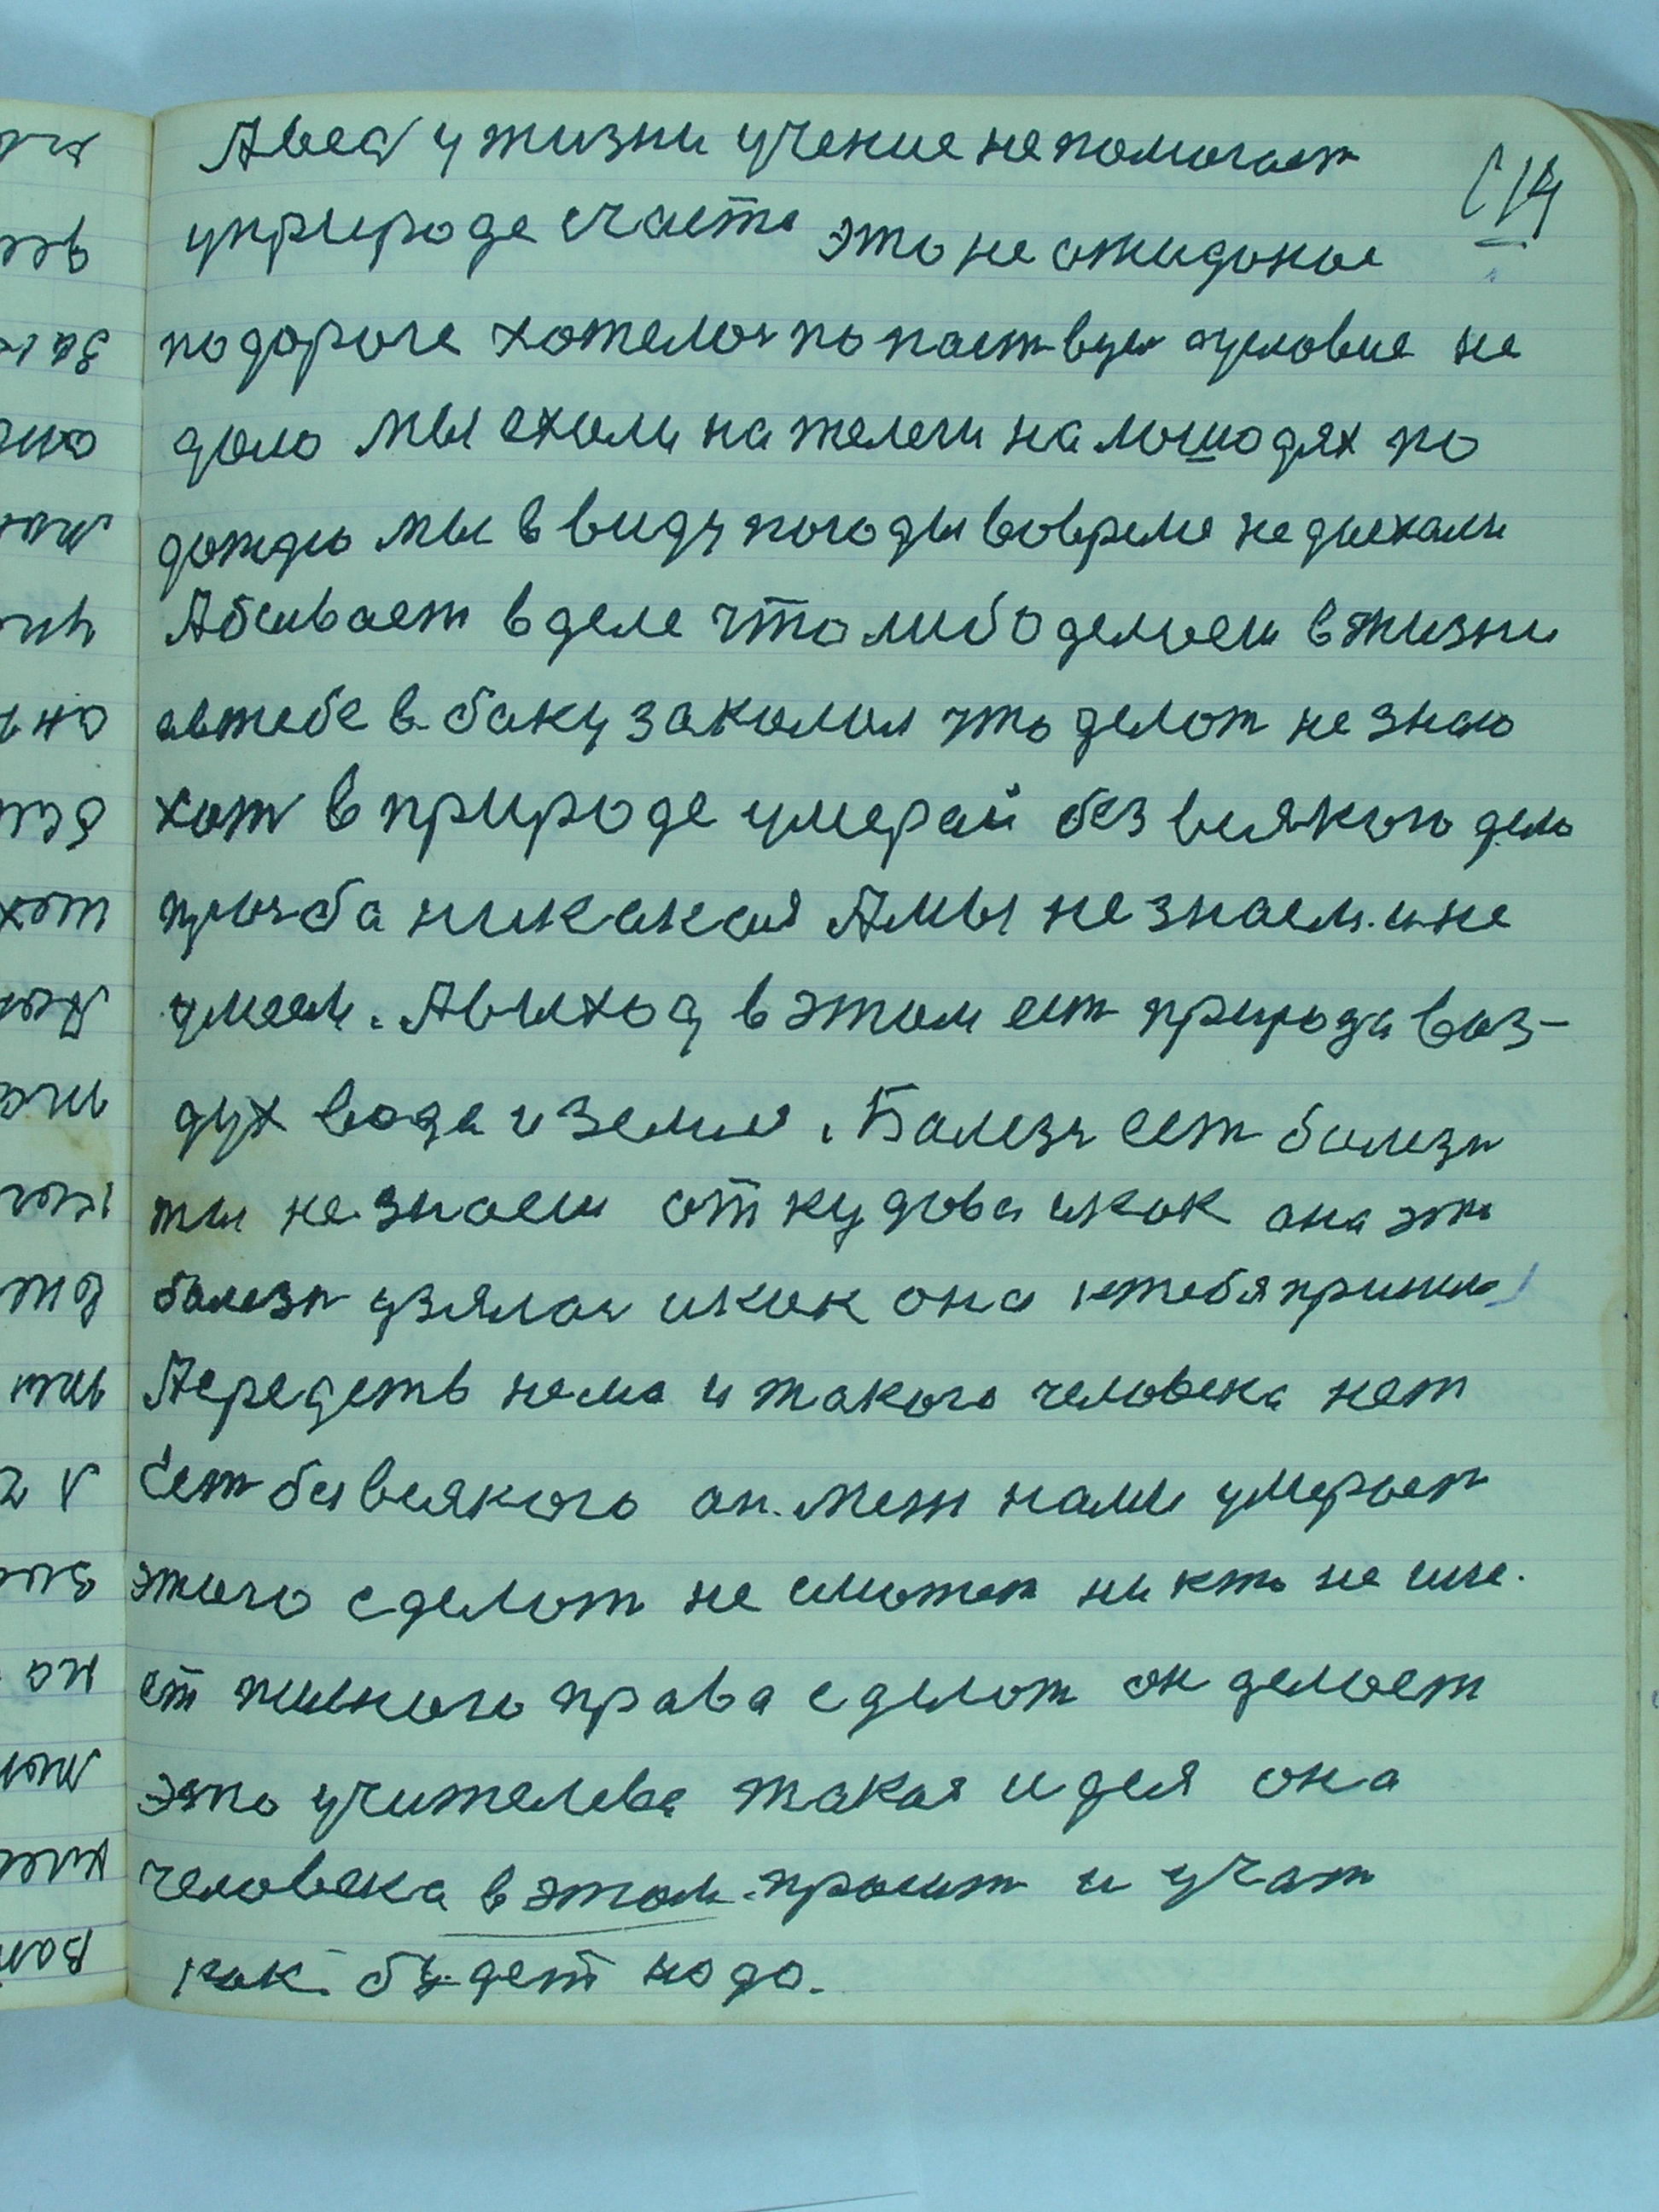 114
Авед у жизни учение не помогает
уприроде счастя это не ожиданое
по дороге хотелос попаст вуел условие не
дало мы ехали на телеги на лошодях по
дождю мы в виду погоды вовремя не доехали
А бывает в деле что либо делоеш в жизни
автебе в боку заколол что делот не знаю
хот в природе умерай без всякого дело
прозба никакая Амы не знаем. и не
умеем. Авыход в этом ест природа воз-
дух вода и земля. Балезн ест болезн
ты не знаеш откудова икак она это
болезн узялас икак она ктебя пришла
Аередетв нема и такого человека нет
Ест без всякого он. меж нами умерает
этого сделот не сможет ни кто не име.
ет таиного права сделот он делоет
это учителева такая идея она
человека в этом. просит и учат
как будет надо.